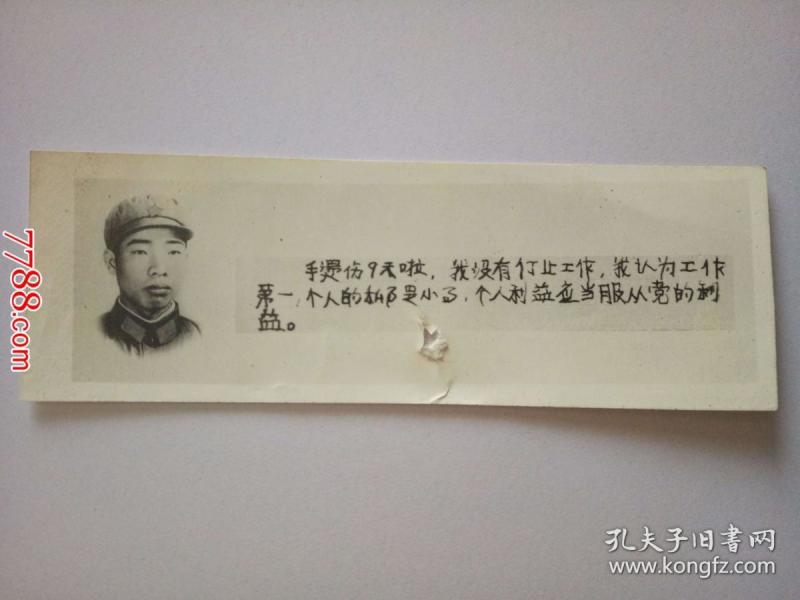 手烫伤9天啦，我没有仃止工作，我认为工作
第一，个人的私是小了，个人利益应当服从党的利
益。
7788.com
孔夫子旧書网
www.kongfz.com